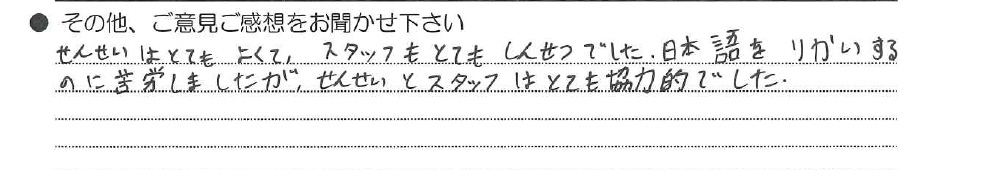 ● その他、ご意見ご感想をお聞かせ下さい
せんせいはとても よくて, スタッフもとても しんせつでした. 日本語を りかいする
のに苦労しましたが, せんせいとスタッフはとても協力的でした.